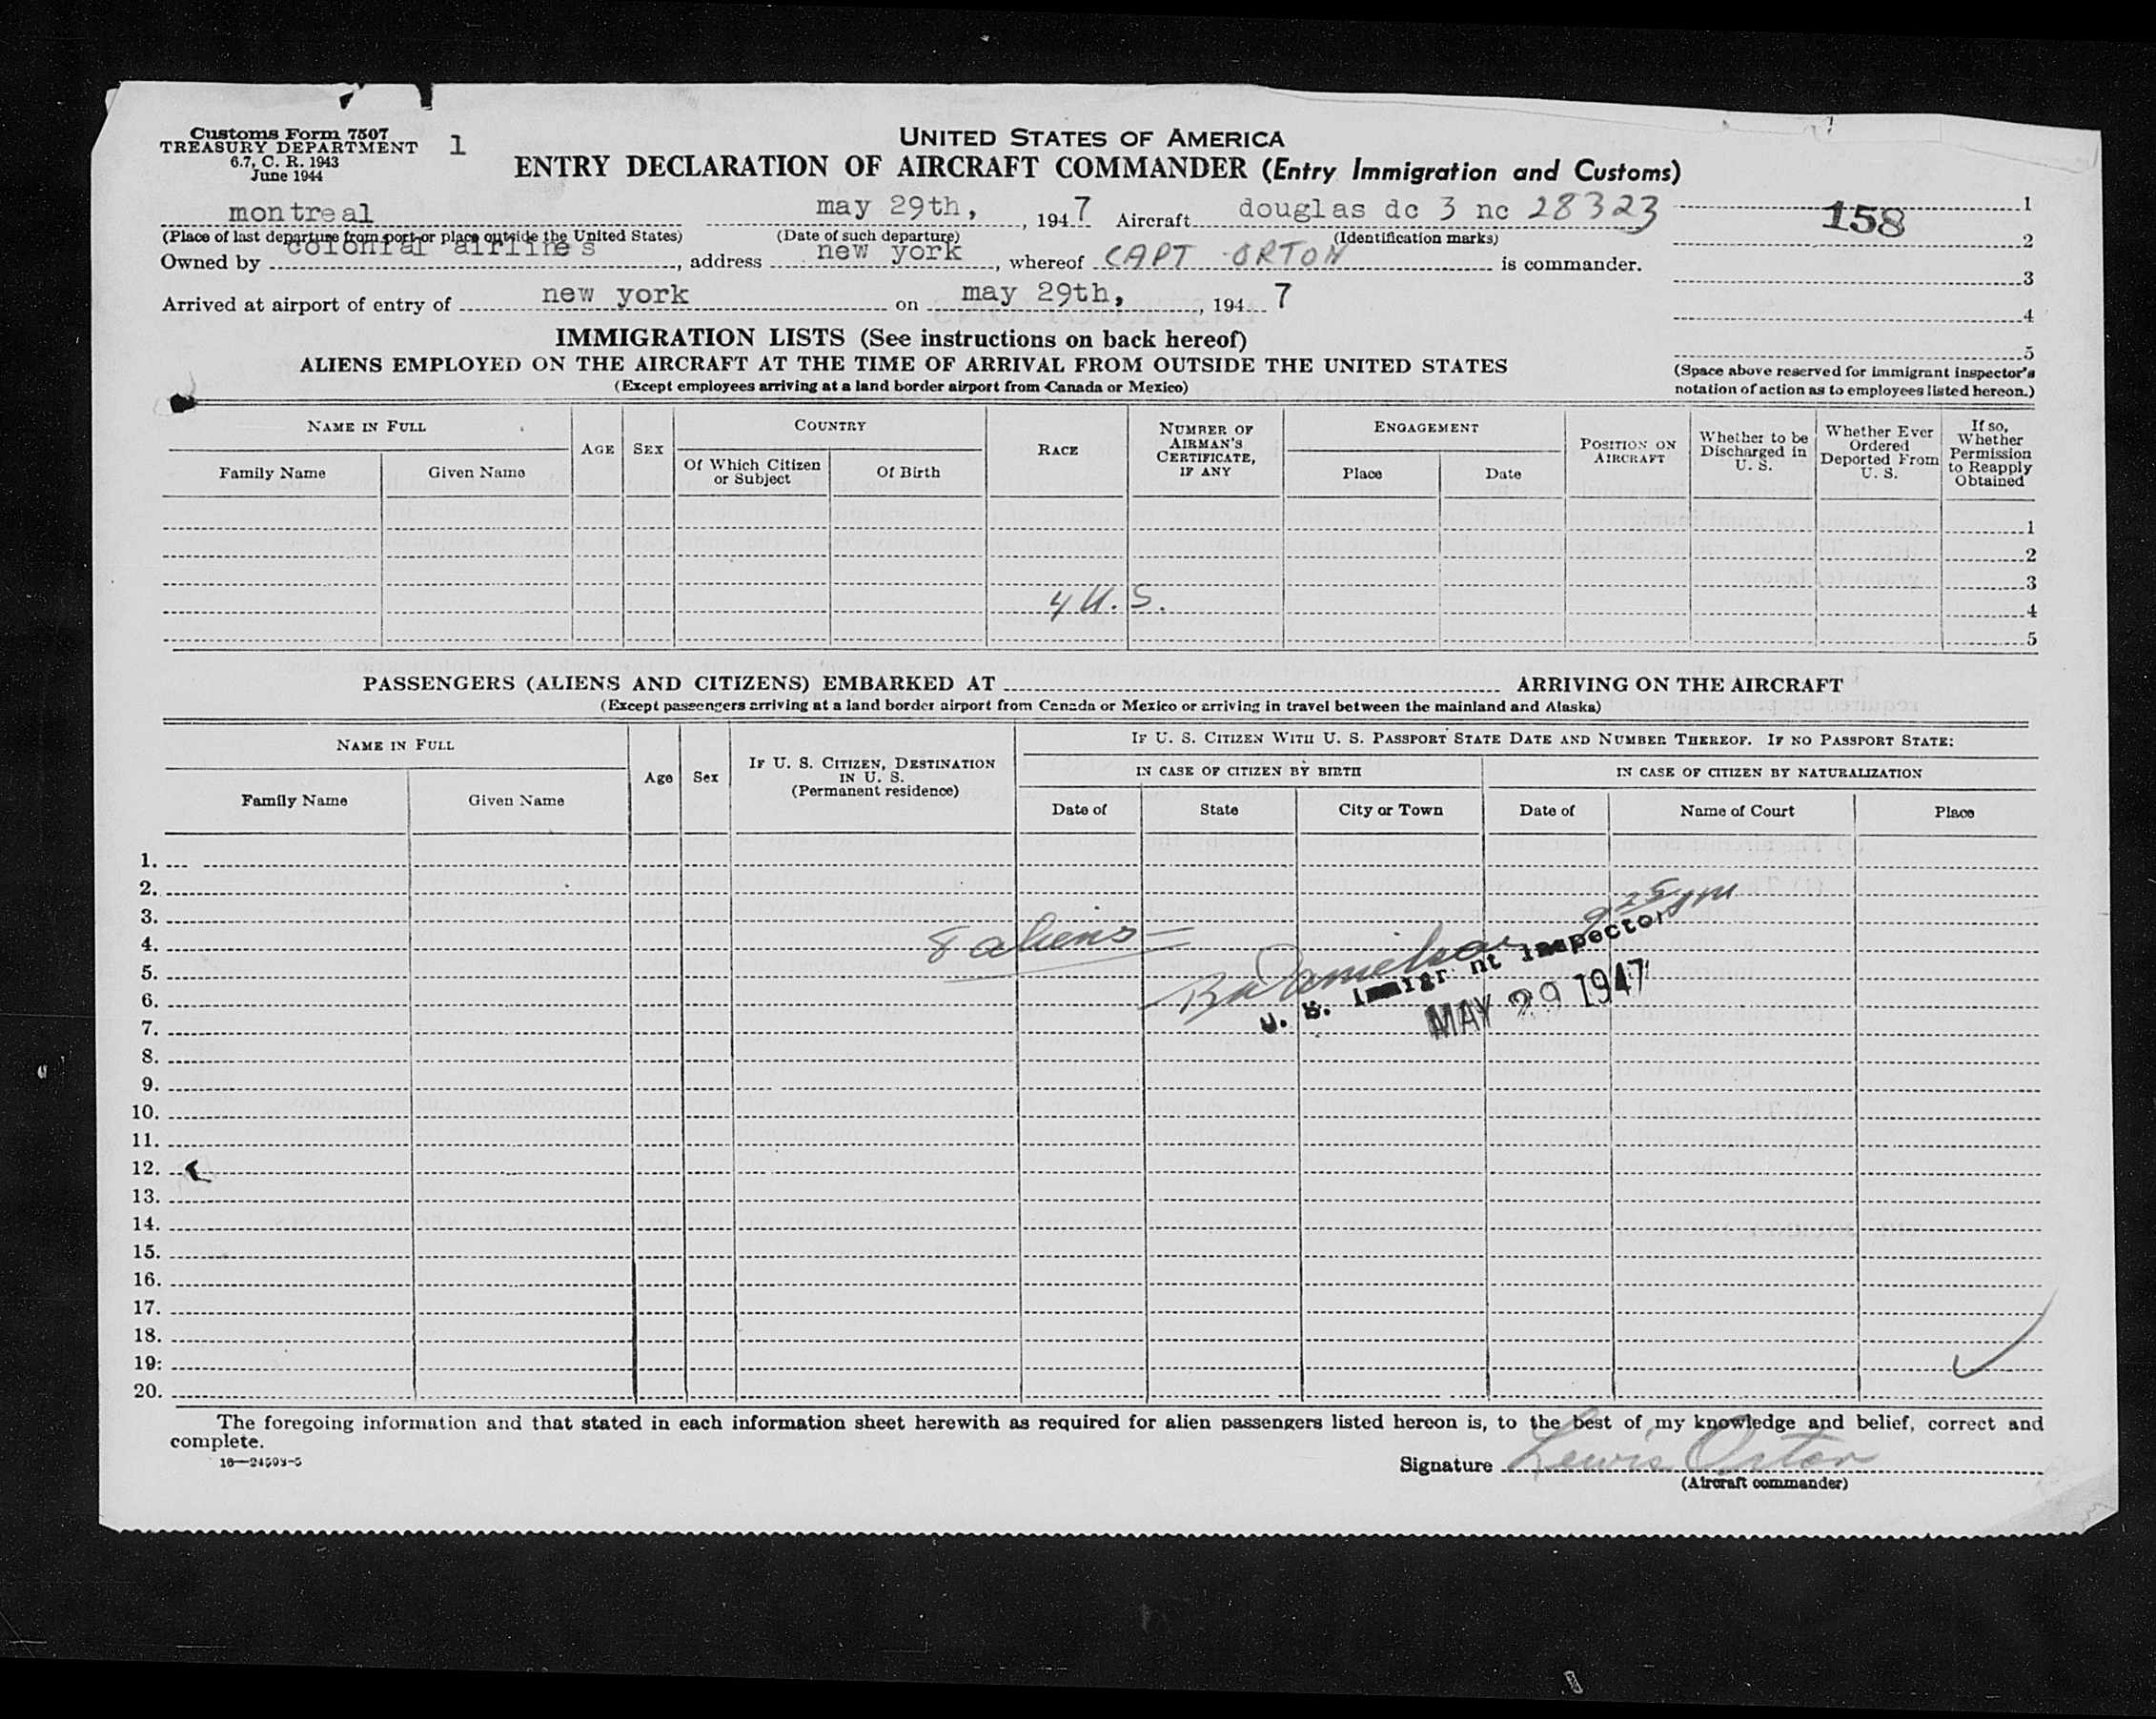 Customs Form 7507
TREASURY DEPARTMENT
6.7, C. R. 1943
June 1944
1
UNITED STATES OF AMERICA
ENTRY DECLARATION OF AIRCRAFT COMMANDER (Entry Immigration and Customs)
montreal may 29th, , 1947 Aircraft douglas dc 3 nc 28323
(Place of last departure from port or place outside the United States) (Date of such departure) (Identification marks)
Owned by colonial airlines, address new york, whereof CAPT ORTON is commander.
Arrived at airport of entry of new york on may 29th, , 194 7
158
1
2
3
4
5
(Space above reserved for immigrant inspector's
notation of action as to employees listed hereon.)
IMMIGRATION LISTS (See instructions on back hereof)
ALIENS EMPLOYED ON THE AIRCRAFT AT THE TIME OF ARRIVAL FROM OUTSIDE THE UNITED STATES
(Except employees arriving at a land border airport from Canada or Mexico)
NAME IN FULL
Family Name
Given Name
AGE
SEX
COUNTRY
Of Which Citizen
or Subject
Of Birth
RACE
NUMBER OF
AIRMAN'S
CERTIFICATE,
IF ANY
ENGAGEMENT
Place
Date
POSITION ON
AIRCRAFT
Whether to be
Discharged in
U. S.
Whether Ever
Ordered
Deported From
U. S.
If so,
Whether
Permission
to Reapply
Obtained
1
2
3
4 U.S.
4
5
PASSENGERS (ALIENS AND CITIZENS) EMBARKED AT ARRIVING ON THE AIRCRAFT
(Except passengers arriving at a land border airport from Canada or Mexico or arriving in travel between the mainland and Alaska)
NAME IN FULL
Family Name
Given Name
Age
Sex
IF U. S. CITIZEN, DESTINATION
IN U. S.
(Permanent residence)
IF U. S. CITIZEN WITH U. S. PASSPORT STATE DATE AND NUMBER THEREOF. IF NO PASSPORT STATE:
IN CASE OF CITIZEN BY BIRTH
IN CASE OF CITIZEN BY NATURALIZATION
Date of
State
City or Town
Date of
Name of Court
Place
1.
2.
3.
4.
5.
6.
7.
8.
9.
10.
11.
12.
13.
14.
15.
16.
17.
18.
19.
20.
8 aliens
U. S. Immigrant Inspector
MAY 29 1947
The foregoing information and that stated in each information sheet herewith as required for alien passengers listed hereon is, to the best of my knowledge and belief, correct and
complete.
16—24598-5
Signature Lewis Orton
(Aircraft commander)